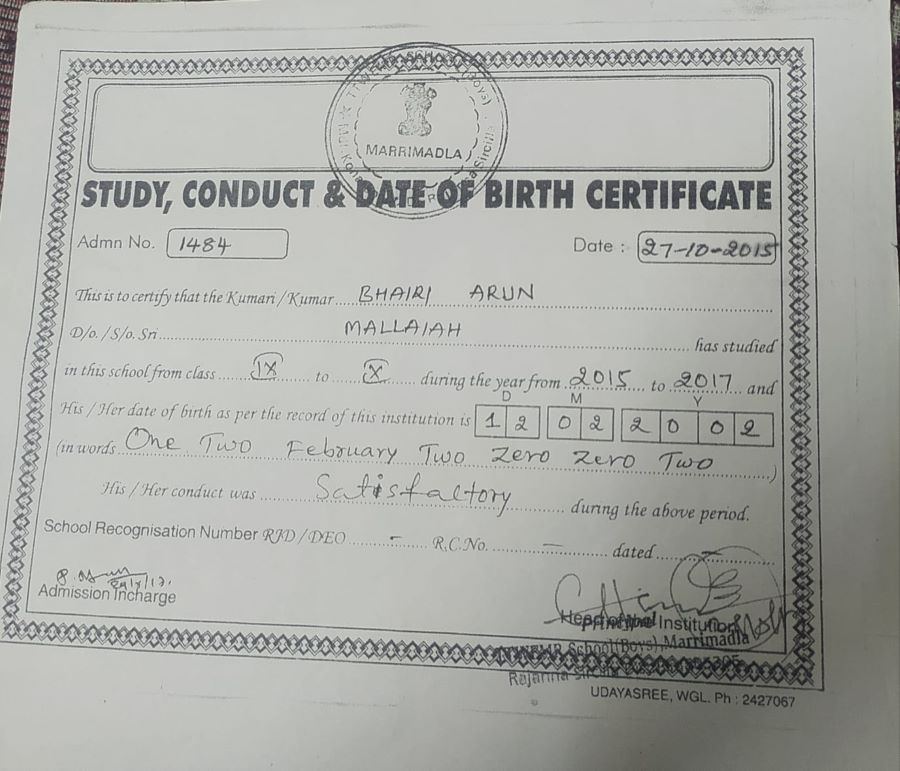 MARRIMADLA
STUDY, CONDUCT & DATE OF BIRTH CERTIFICATE
Admn No. 1484 Date : 27-10-2015
This is to certify that the Kumari / Kumar BHAIRI ARUN
D/o. / S/o. Sri MALLAIAH has studied
in this school from class IX to X during the year from 2015 to 2017 and
D M Y
His / Her date of birth as per the record of this institution is 1 2 0 2 2 0 0 2
(in words One Two February Two Zero Zero Two )
His / Her conduct was Satisfactory during the above period.
School Recognisation Number RJD / DEO - R.C.No. - dated -
Admission Incharge
Head of the Institution
Principal
School (Boys) Marrimadla
Rajanna Sircilla
UDAYASREE, WGL. Ph : 2427067